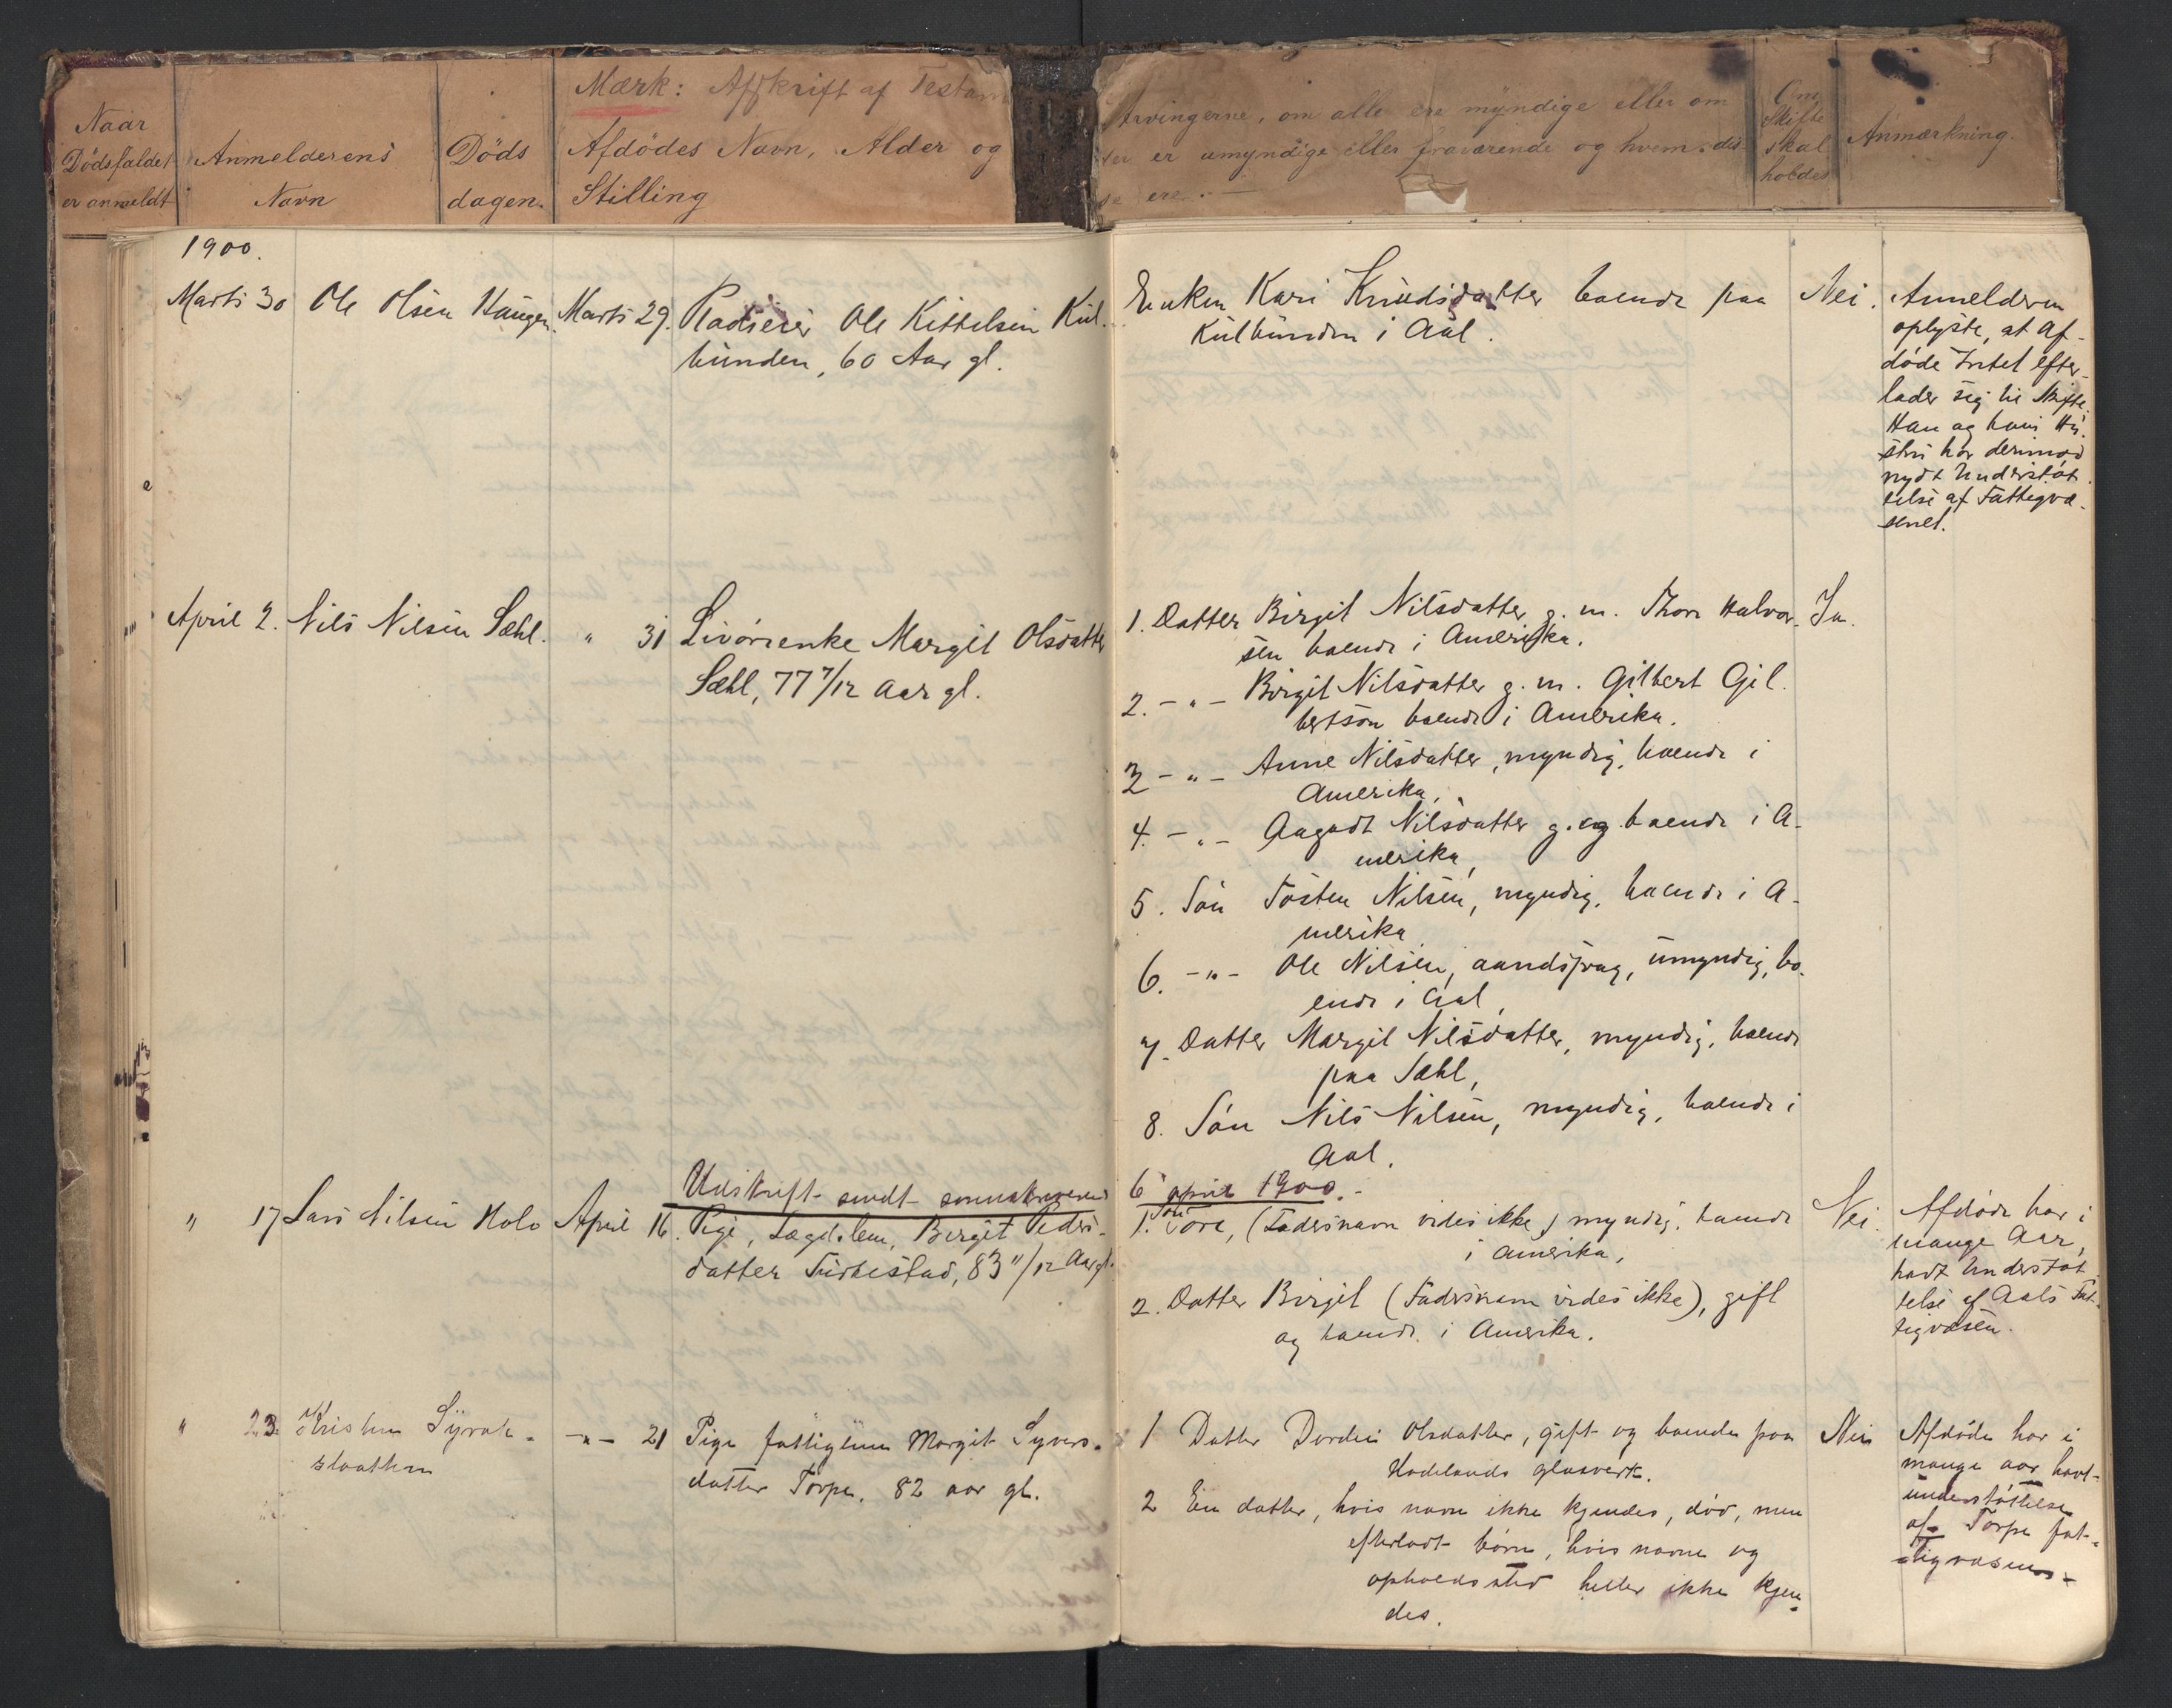 Mærk: Afskrift af Testam
Naar
Dödsfaldet
er anmeldt
Anmelderens
Navn
Döds
dagen.
Afdödes Navn, Alder og
Stilling
Arvingerne, om alle ere myndige eller om
er umyndige eller fraværende og hvem dis
se ere. —
Om
Skifte
skal
holdes
Anmærkning.
1900.
Marts 30
Ole Olsen Haugen.
Marts 29.
Pladseier Ole Kittelsen Kul-
bunden, 60 Aar gl.
Enken Kari Knudsdatter boende paa
Kulbunden i Aal.
Nei.
Anmelderen
oplyste, at af-
døde Intet efter-
lader sig til Skifte.
Han og hans Hu-
stru har derimod
nydt Understøt-
telse af Fattigvæ-
senet.
April 2.
Nils Nilsen Sæhl.
" 31
Livørenke Margit Olsdatter
Sæhl, 77 7/12 Aar gl.
1. Datter Birgit Nilsdatter g. m. Thor Halvor-
sen boende i Amerika.
2. -"- Birgit Nilsdatter g. m. Gilbert Gil-
bertson boende i Amerika.
3 -"- Anne Nilsdatter, myndig, boende i
Amerika,
4. -"- Aagodt Nilsdatter g. og boende i A-
merika,
5. Søn Tosten Nilsen, myndig, boende i A-
merika
6. -"- Ole Nilsen, aandssvag, umyndig, bo-
ende i Aal,
7. Datter Margit Nilsdatter, myndig, boende
paa Sæhl,
8. Søn Nils Nilsen, myndig, boende i
Aal.
Ja.
Udskrift sendt sorenskriveren
6 april 1900.-
" 17
Lars Nilsen Holo
April 16.
Pige, Lægdslem, Birgit Peders-
datter Turkestad, 83 11/12 Aar gl.
1. Søn Tore, (Fadersnavn vides ikke) myndig, boende
i Amerika,
2. Datter Birgit (Fadersnavn vides ikke), gift
og boende i Amerika.
Nei.
Afdøde har i
mange Aar,
havt Understøt-
telse af Aals Fat-
tigvæsen.
" 23.
Kristen Syvab-
slaatten
-"- 21
Pige fattiglem Margit Syvers-
datter Torpe. 82 aar gl.
1 Datter Dordei Olsdatter, gift og boende paa
Hadelands glasverk.
2 En datter, hvis navn ikke kjendes, død, men
efterladt børn, hvis navne og
opholdssted heller ikke kjen-
des.
Nei
Afdøde har i
mange aar havt
understøttelse
af Torpe fat-
tigvæsen.